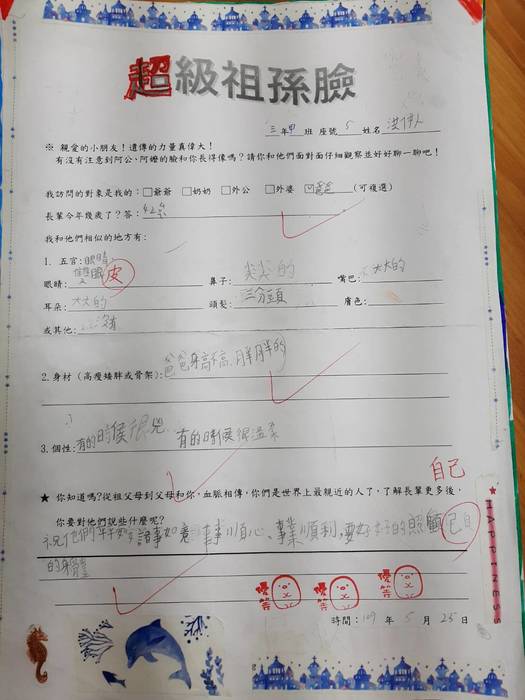 超級祖孫臉
三年甲班 座號 5 姓名 洪
※ 親愛的小朋友！遺傳的力量真偉大！
有沒有注意到阿公、阿嬤的臉和你長得像嗎？請你和他們面對面仔細觀察並好好聊一聊吧！
我訪問的對象是我的：□爺爺 □奶奶 □外公 □外婆 ☑爸爸(可複選)
長輩今年幾歲了？答：42歲
我和他們相似的地方有：
1. 五官：眼睛
眼睛：雙眼皮 鼻子：尖尖的 嘴巴：大大的
耳朵：大大的 頭髮：三分頭 膚色：
或其他：沒有
2. 身材（高瘦矮胖或骨架）：爸爸身高不高、胖胖的
3. 個性：有的時候很兇 有的時候很溫柔
自己
★ 你知道嗎?從祖父母到父母和你，血脈相傳，你們是世界上最親近的人了，了解長輩更多後，
你要對他們說些什麼呢？
祝他們 諸事如意 事事順心、事業順利、要好好的照顧己自
的身體
優等 優等 優等
時間：109 年 5 月 25 日
HAPPINESS